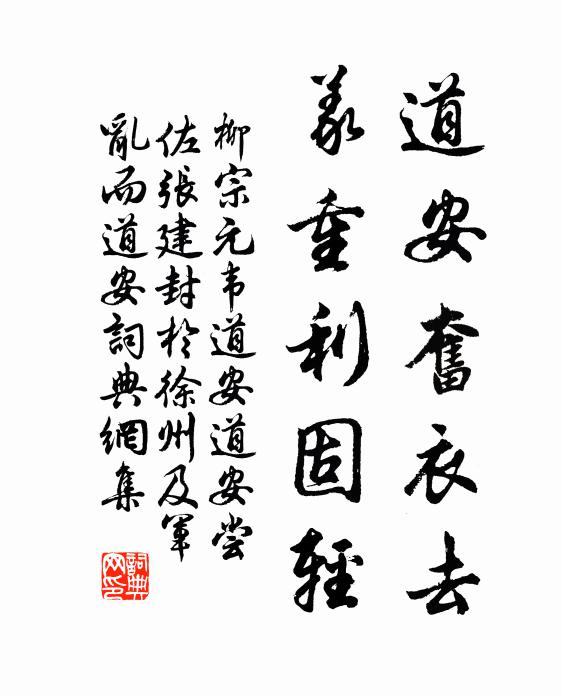 道安奮衣去
義重利固輕
柳宗元韦道安道安尝
佐張建封於徐州及軍
亂而道安詞典網集
詞典
网印